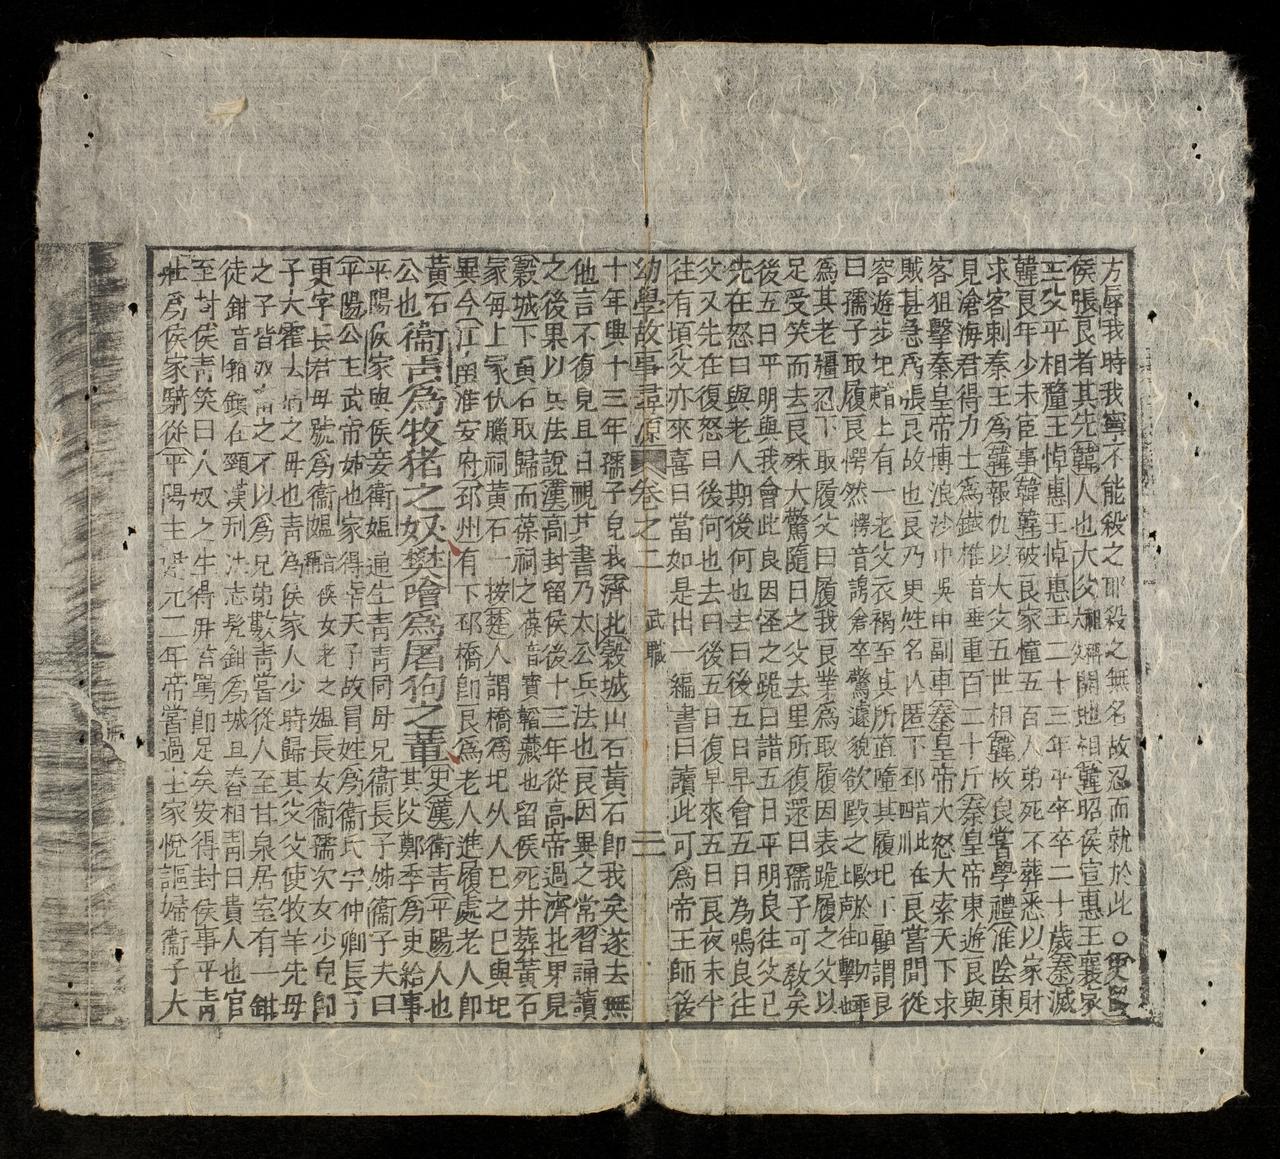 方辱我時我寧不能殺之耶殺之無名故忍而就於此○
侯張良者其先韓人也大父開地相韓昭侯宣惠王襄哀
王父平相釐王悼惠王悼惠王二十三年平卒卒二十歲秦滅
韓良年少未臣事韓韓破良家僮五百人弟死不葬悉以家財
求客刺秦王為韓報仇以大父五世相韓故良嘗學禮淮陰東
見滄海君得力士為鐵椎音垂重百二十斤秦皇帝東遊良與
客狙擊秦皇帝博浪沙中吳中副車秦皇帝大怒大索天下求
賊甚急為張良故也良乃更姓名亾匿下邳
容遊步圯上有一老父衣褐至其所直墮其履圯下顧謂良
曰孺子取履良愕然愕音諤倉卒驚遽貌欲毆之
為其老彊忍下取履父曰履我良業為取履因表跪履之父以
足受笑而去良殊大驚隨目之父去里所復還曰孺子可教矣
後五日平明與我會此良因怪之跪曰諾五日平明良往父已
先在怒曰與老人期後何也去曰後五日早會五日為鳴良往
父又先在復怒曰後何也去曰後五日復早來五日良夜未半
往有頃父亦來喜曰當如是出一編書曰讀此可為帝王師後
幼學故事尋源 卷之二 武職 二
十年興十三年孺子見我濟北穀城山石黃石即我矣遂去無
他言不復見旦日視其書乃太公兵法也良因異之常習誦讀
之後果以兵法說漢高封留侯後十三年從高帝過濟北界見
穀城下黃石取歸而葆祠之葆音寶韜藏也留侯死并葬黃石
冢每上冢伏臘祠黃石一按楚人謂橋為圯从人巳之巳與圯
異今江南淮安府邳州有下邳橋即良為老人進履處老人即
黃石公也衞青為牧猪之奴樊噲為屠狗之輩史漢衛青平陽人也
其父鄭季為吏給事
平陽侯家與侯妾衛媼通生青青同母兄衞長子姊衞子夫曰
平陽公主武帝姊也家得幸天子故冒姓為衞氏字仲卿長子
更字長君母號為衞媼
子大霍去病之母也青為侯家人少時歸其父父使牧羊先母
之子皆奴畜之不以為兄弟數青嘗從人至甘泉居室有一鉗
徒相青曰貴人也官
至封侯青笑曰人奴之生得毋笞罵即足矣安得封侯事乎青
壯為侯家騎從平陽主 元二年帝嘗過主家悅謳婦衞子大